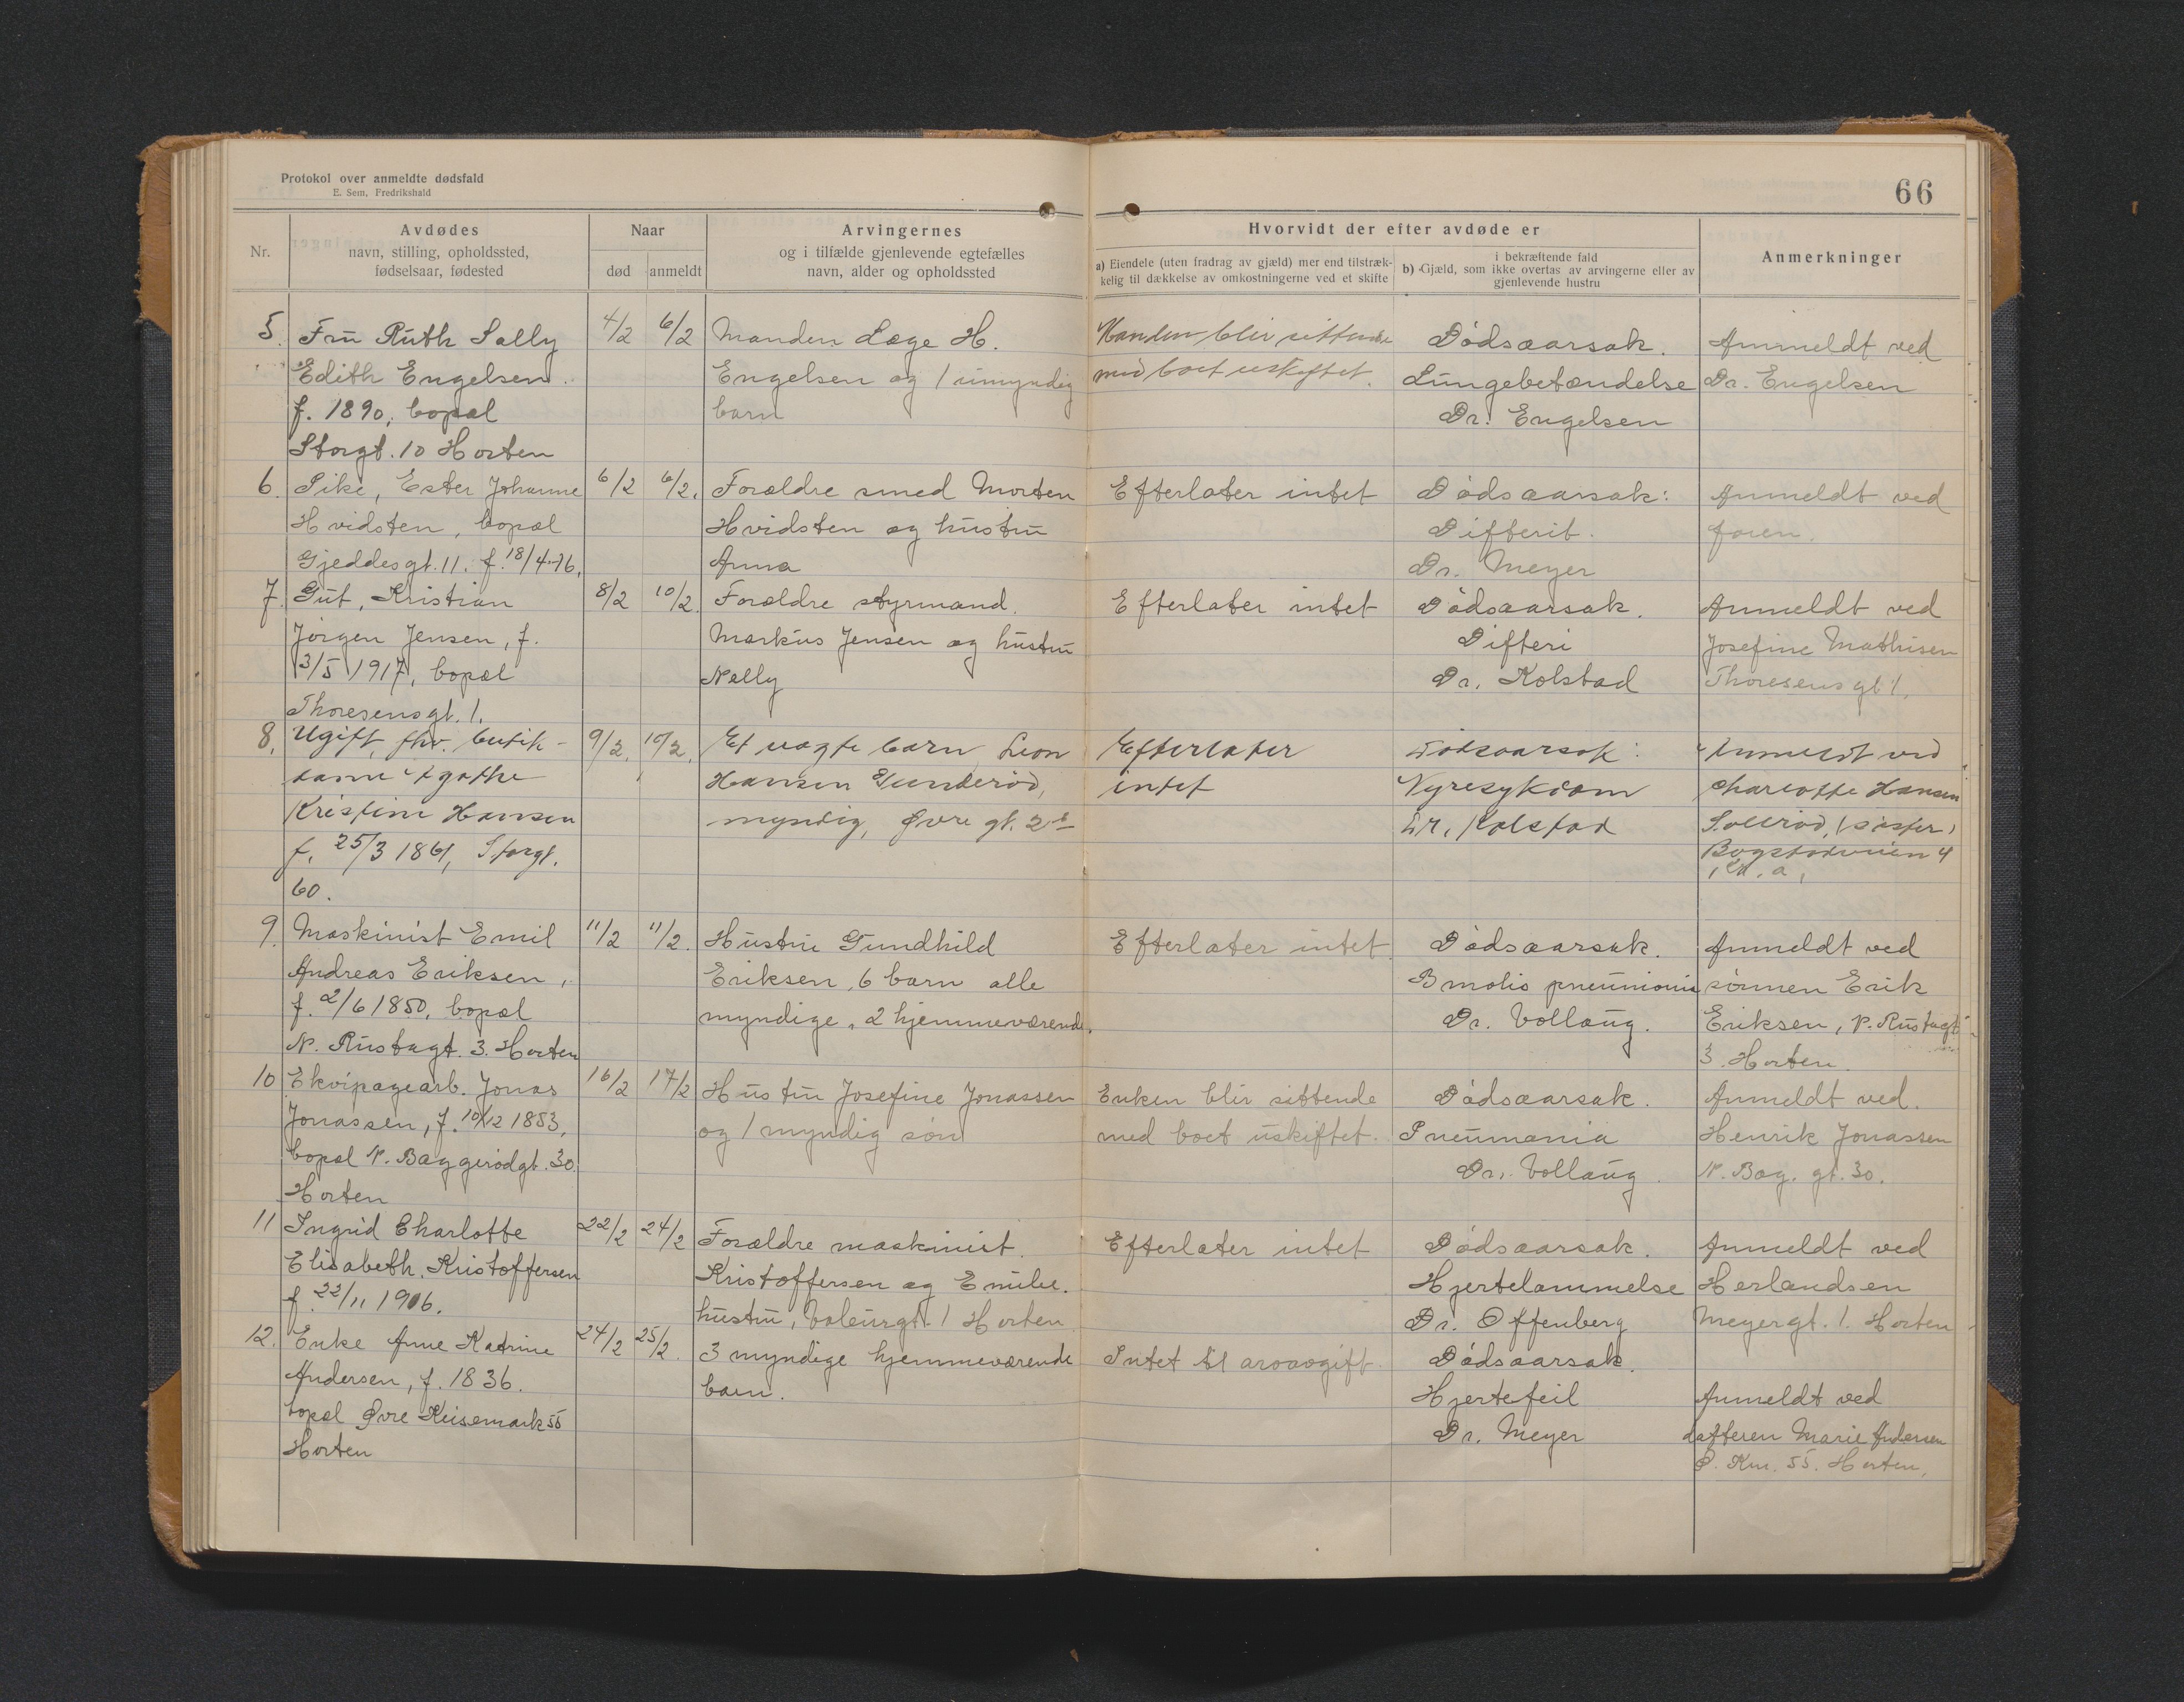 Protokol over anmeldte dødsfald
E. Sem, Fredrikshald
66
Nr.
Avdødes
navn, stilling, opholdssted,
fødselsaar, fødested
Naar
død
anmeldt
Arvingernes
og i tilfælde gjenlevende egtefælles
navn, alder og opholdssted
Hvorvidt der efter avdøde er
a) Eiendele (uten fradrag av gjæld) mer end tilstræk-
kelig til dækkelse av omkostningerne ved et skifte
i bekræftende fald
b) Gjæld, som ikke overtas av arvingerne eller av
gjenlevende hustru
Anmerkninger
5. Fru Ruth Sally
Edith Engelsen.
f. 1890, bopæl
Storgt. 10 Horten
4/2 6/2
Manden Læge H.
Engelsen og 1 umyndig
barn
Manden blir sittende
med boet uskiftet.
Dødsaarsak.
Lungebetændelse
Dr. Engelsen
Anmeldt ved
Dr. Engelsen
6. Pike, Ester Johanne
Hvidsten, bopæl
Gjeddesgt. 11. f. 18/4-16.
6/2 6/2.
Forældre smed Morten
Hvidsten og hustru
Anna
Efterlater intet
Dødsaarsak:
Difterit.
Dr. Meyer
Anmeldt ved
faren.
7. Gut, Kristian
Jørgen Jensen, f.
13/5 1917, bopæl
Thoresensgt. 1.
8/2 10/2.
Forældre styrmand.
Markus Jensen og hustru
Nelly
Efterlater intet
Dødsaarsak.
Difteri
Dr. Kolstad
Anmeldt ved
Josefine Mathisen
Thoresensgt 1.
8. Ugift, fhv. butik-
dame Agathe
Kristine Hansen
f. 25/3 1861, Storgt.
60.
9/2. 10/2.
Et uægte barn Leon
Hansen Gunderød,
myndig, Øvre gt. 2
Efterlater
intet
Dødsaarsak:
Nyresykdom
Dr. Kolstad
Anmeldt ved
Charlotte Hansen
Sollrød, (søster)
Bogstadveien 4
Kr. a.
9. Maskinist Emil
Andreas Eriksen,
f. 2/6 1850, bopæl
N. Rustagt. 3. Horten
11/2 11/2.
Hustru Gundhild
Eriksen, 6 barn alle
myndige, 2 hjemmeværende.
Efterlater intet.
Dødsaarsak.
pneumonie
Dr. Vollaug.
Anmeldt ved
sønnen Erik
Eriksen, N. Rustagt
3. Horten.
10 Ekvipagearb. Jonas
Jonassen, f. 10/12 1853,
bopæl N. Baggerødgt. 30
Horten
16/2 17/2
Hustru Josefine Jonassen
og 1 myndig søn
Enken blir sittende
med boet uskiftet.
Dødsaarsak.
Pneumonia
Dr. Vollaug.
Anmeldt ved.
Henrik Jonassen
N. Bag. gt. 30.
11 Ingrid Charlotte
Elisabeth Kristoffersen
f. 22/11 1906.
22/2 24/2
Forældre maskinist.
Kristoffersen og Emilie.
hustru, 1 Horten
Efterlater intet
Dødsaarsak.
Hjertelammelse
Dr. Offenberg
Anmeldt ved
Herlandsen
Meyergt. 1. Horten
12. Enke Anne Katrine
Andersen, f. 1836.
bopæl Øvre Keisemark 55
Horten
24/2 25/2.
3 myndige hjemmeværende
barn.
Intet til arvavgift.
Dødsaarsak.
Hjertefeil
Dr. Meyer
Anmeldt ved
datteren Marie Andersen
Ø. Km. 55. Horten.